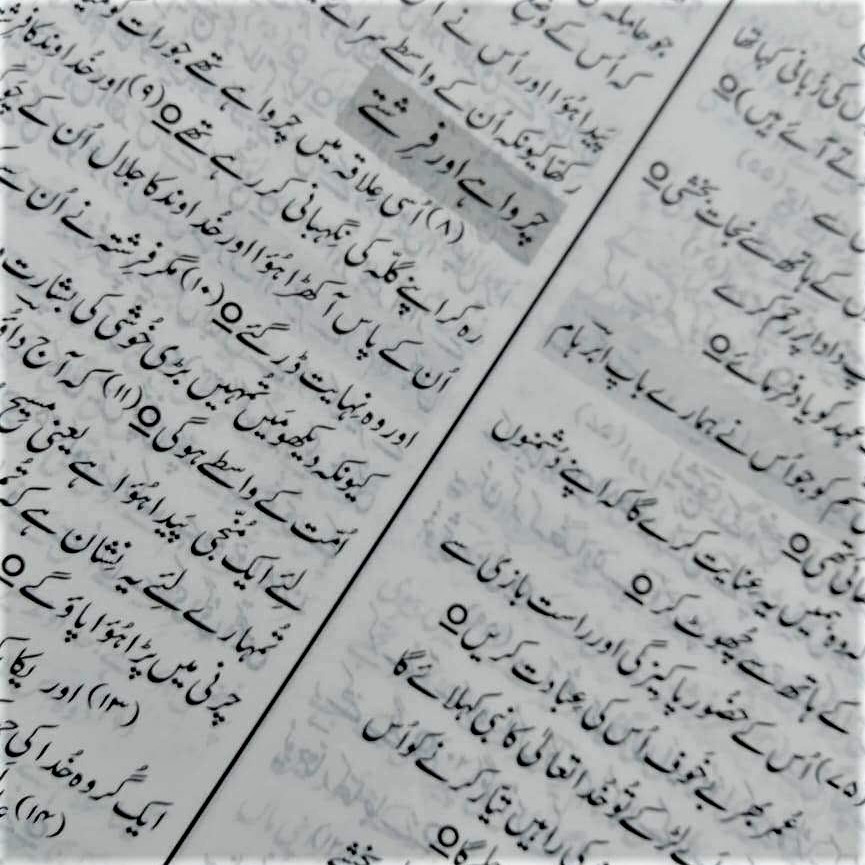 کی زبانی کہا تھا
آئے ہیں)O
سے
کے ہاتھ سے نجات بخشی O
دادا پر رحم کرے
عہد کو یاد فرمائے O
قسم کو جو اُس نے ہمارے باپ ابرہام
کھائی تھی O
وہ ہمیں یہ عنایت کرے گا کہ اپنے دُشمنوں
کے ہاتھ سے چُھوٹ کر O
(۷۵) اُس کے حضُور پاکیزگی اور راست بازی سے
عُمر بھر بے خَوف اُس کی عِبادت کریں O
لڑکے تُو خُدا تعالیٰ کا نبی کہلائے گا
کی راہیں تیّار کرنے کو اُس
گا O
جو حاملہ
کہ اُس کے وضع
پَیدا ہُوَا اور اُس نے
رکھّا کیونکہ اُن کے واسطے سرائے
چرواہے اور فرشتے
(۸) اُسی علاقہ میں چرواہے تھے جو رات کو
رہ کر اپنے گلّہ کی نِگہبانی کر رہے تھے O (۹) اور خُداوند کا
اُن کے پاس آ کھڑا ہُوَا اور خُداوند کا جلال اُن کے
اور وہ نہایت ڈر گئے O (۱۰) مگر فرِشتہ نے اُن سے
کیونکہ دیکھو مَیں تُمہیں بڑی خُوشی کی بشارت
اُمّت کے واسطے ہوگی O (۱۱) کہ آج
لئے ایک مُنجّی پَیدا ہُوَا ہے یعنی مسیح
تُمہارے لئے یہ نِشان ہے کہ
چرنی میں پڑا ہُوَا پاؤ گے O
(۱۳) اور یکا
ایک گروہ خُدا کی
(۱۴)